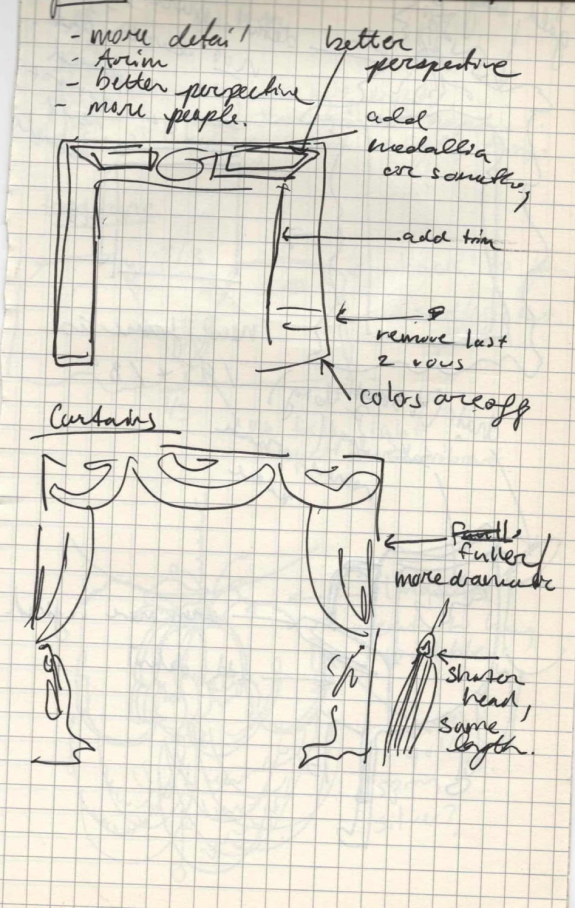 - more detail
- trim
- better perspective
- more people.
better
perspective
add
medallia
or somethg
add trim
remove last
2 rows
colors are off
Curtains
fuller
more dramatic
shorter
head,
same
length.